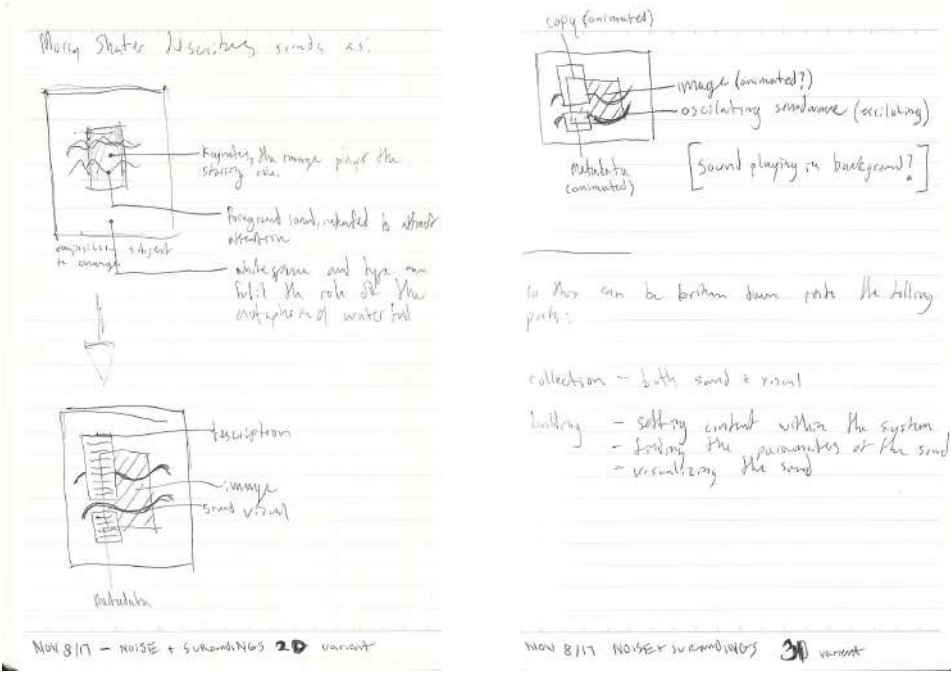 describes sounds as:
Keynotes, the image plays the
starring role.
foreground sound, intended to attract
attention
composition subject
to change
whitespace and type can
fulfil the role of the
metaphor of
description
image
sound visual
metadata
NOV 8/17 - NOISE + SURROUNDINGS 2D variant
copy (animated)
image (animated?)
oscilating soundwave (oscilating)
metadata
(animated)
[Sound playing in background?]
so this can be broken down into the
parts:
collection - both sound & visual
building - setting content within the system
- finding the parameters of the sound
- visualizing the sound
NOV 8/17 NOISE + SURROUNDINGS 3D variant